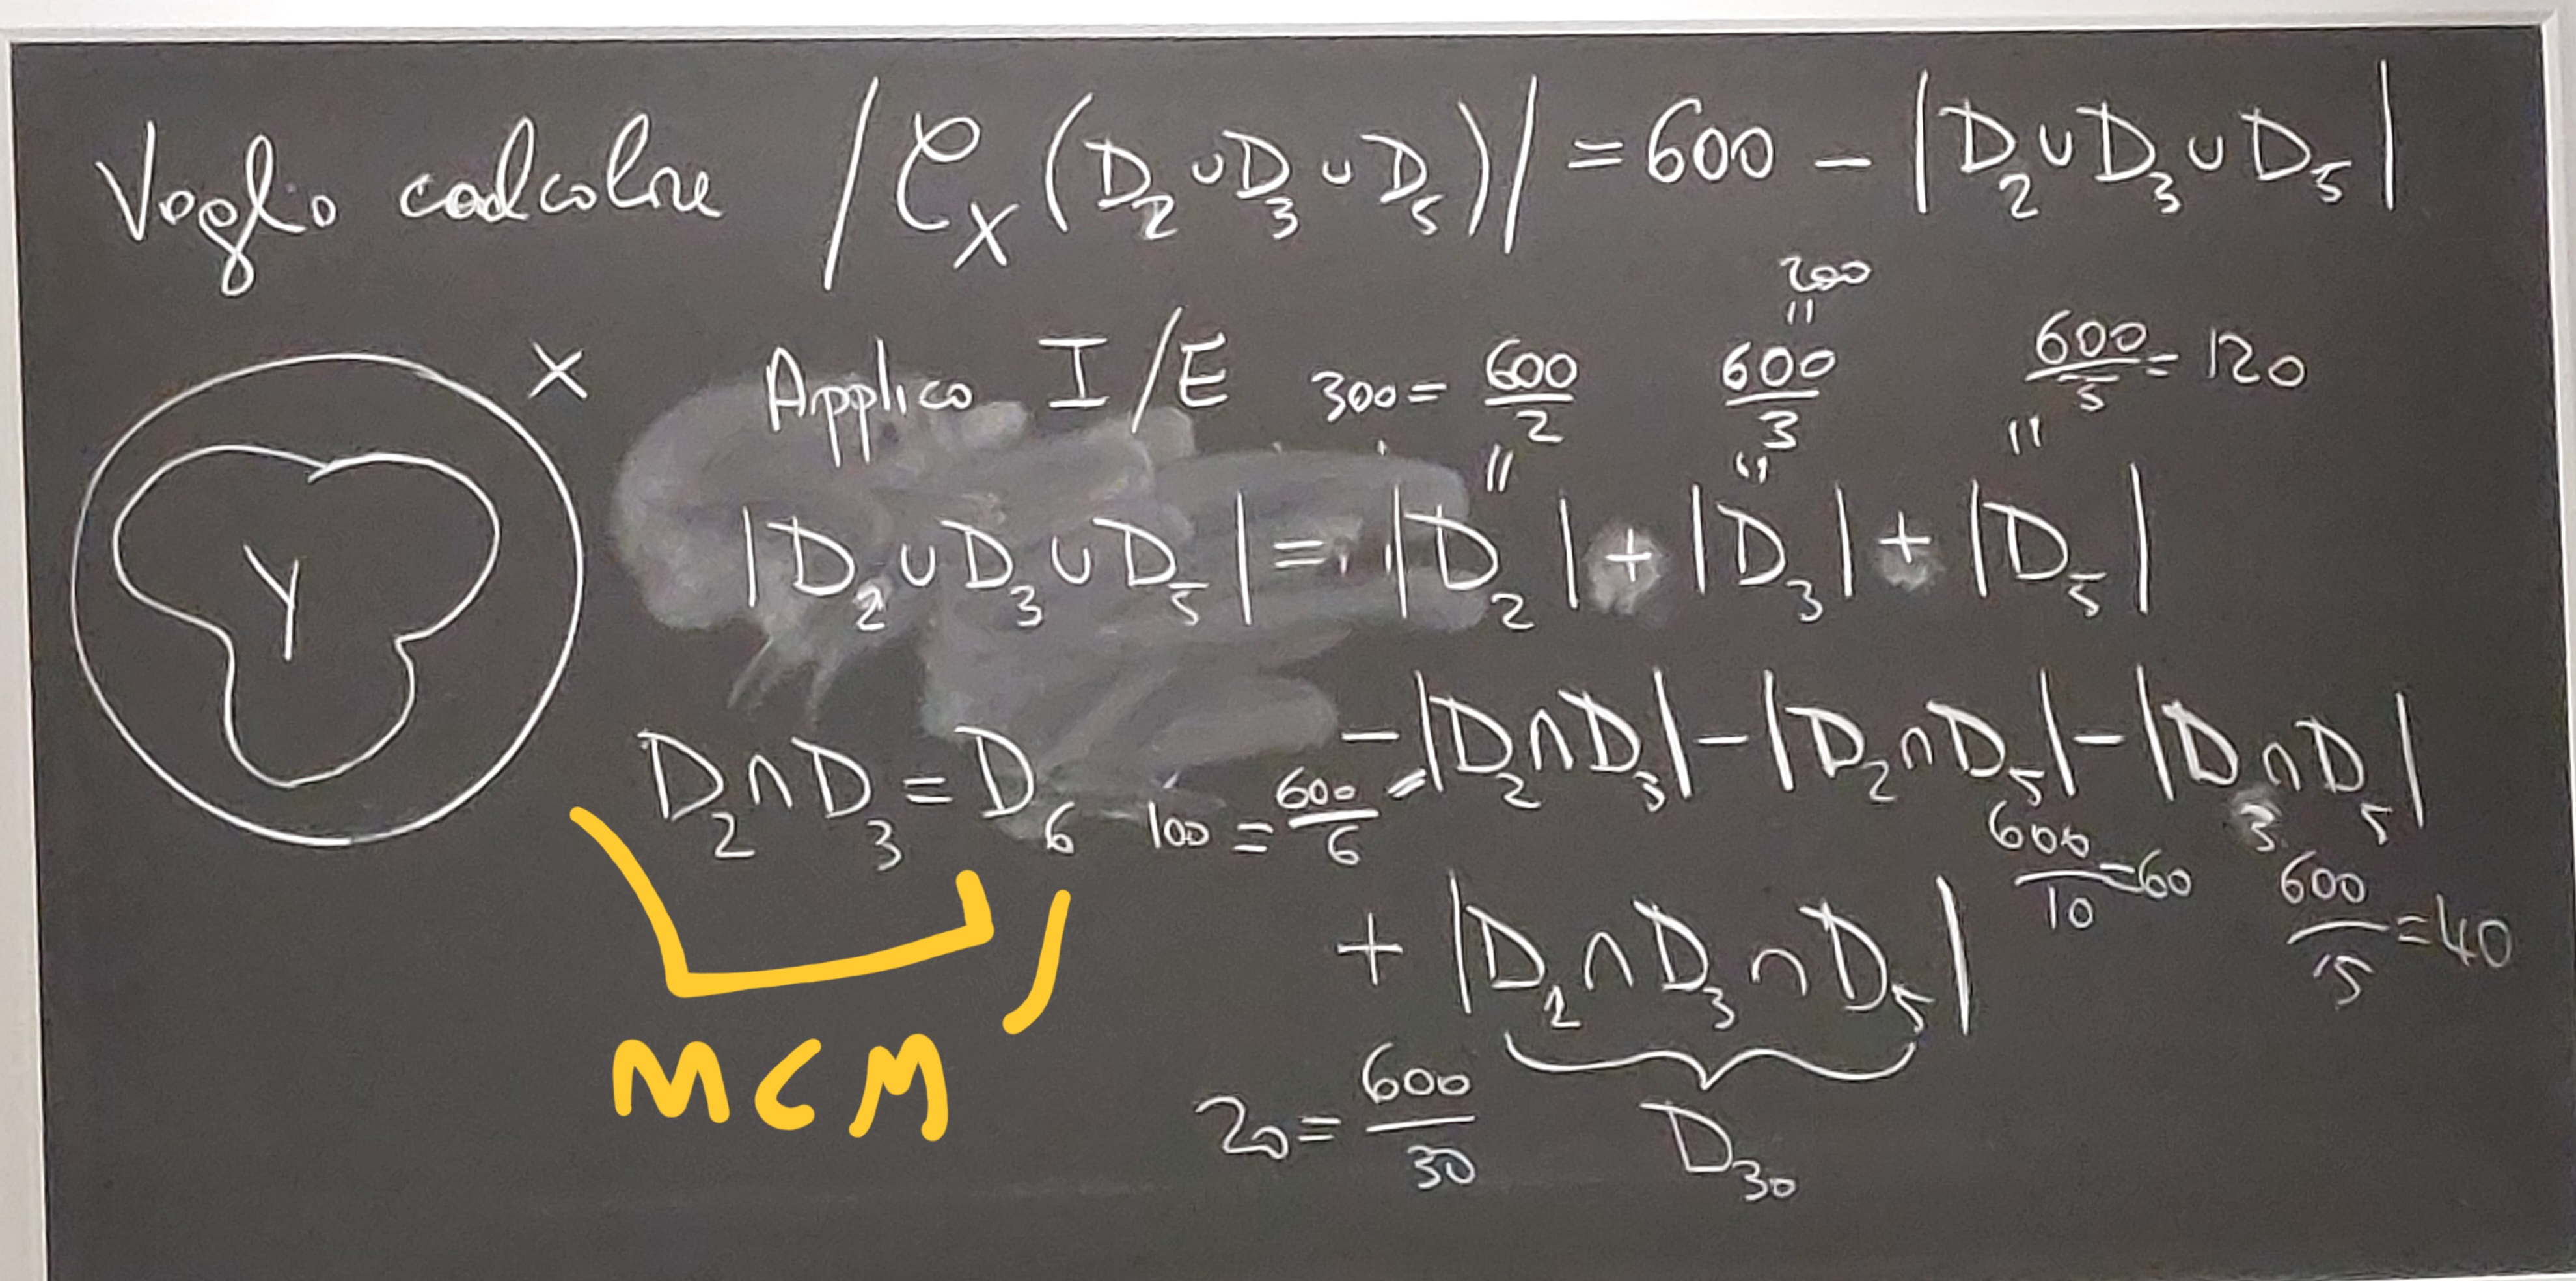 Voglio calcolare |C_X (D_2 ∪ D_3 ∪ D_5)| = 600 − |D_2 ∪ D_3 ∪ D_5|
X
Y
Applico I/E
300 = 600/2
200 = 600/3
600/5 = 120
|D_2 ∪ D_3 ∪ D_5| = |D_2| + |D_3| + |D_5|
− |D_2 ∩ D_3| − |D_2 ∩ D_5| − |D_3 ∩ D_5|
D_2 ∩ D_3 = D_6
100 = 600/6 =
600/10 = 60
600/15 = 40
+ |D_2 ∩ D_3 ∩ D_5|
MCM
20 = 600/30
D_30